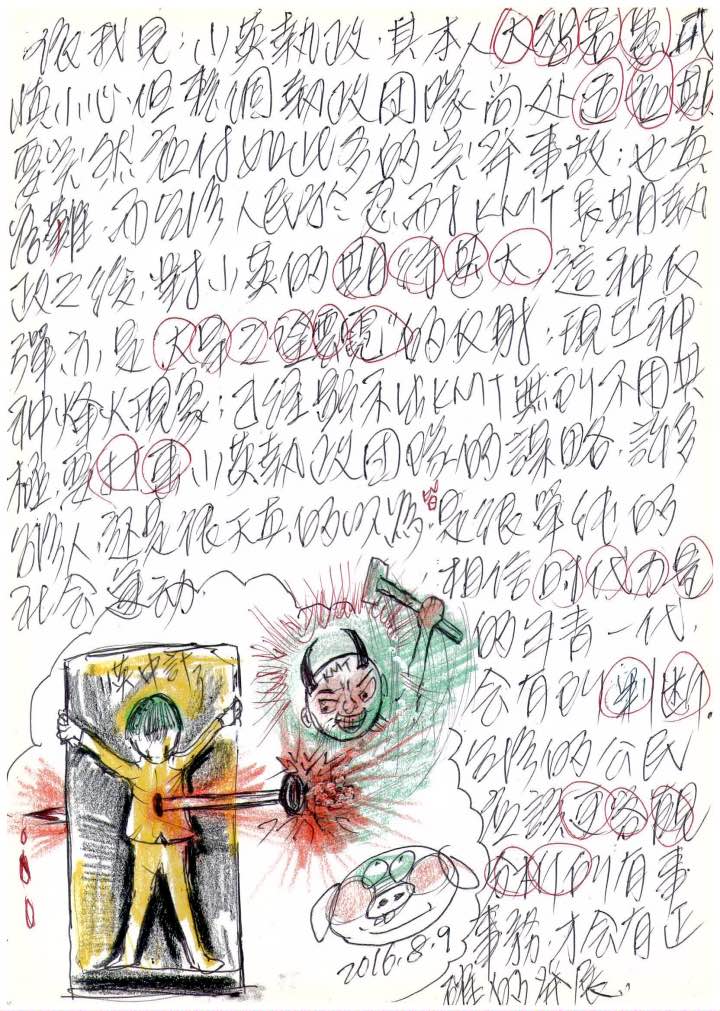 依我見:小英執政,其本人大智若愚,戒
慎小心,但整個執政团隊尚处适应期
要突然应付如此多的突發事故;也真
為難,而台湾人民於忍耐KMT長期執
政之後,對小英的期待甚大,這种反
彈亦是大旱之望雲霓的反射;現在种
种烽火現象;已經顯示出KMT無所不用其
極,要打擊小英執政团隊的謀略,許多
台湾人,还是很天真的以為皆是很單純的
社会运动.
相信时代力量
的年青一代,
会有所判断,
台湾的公民
应該
的所有事
事務,才会有正
確的發展.
小英中計了
KMT
2016.8.9